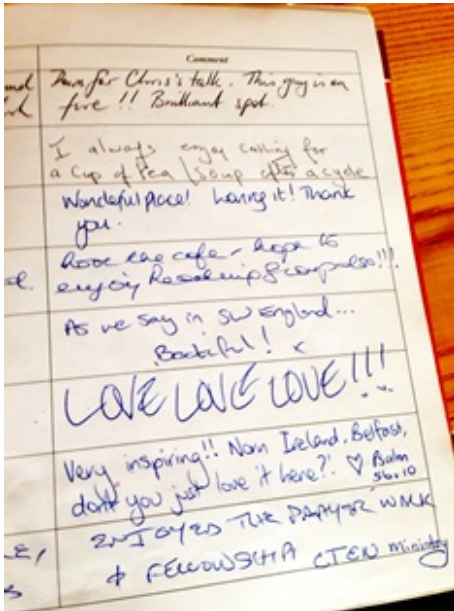 Comment
Down for Chris's talk. This guy is on
fire!! Brilliant spot.
I always enjoy calling for
a cup of tea/soup after a cycle
Wonderful place! Loving it! Thank
you.
Love the cafe - hope to
enjoy
As we say in SW England...
Beautiful! x
LOVE LOVE LOVE!!!
Very inspiring!! Norn Ireland, Belfast,
don't you just love it here?! ♡ Psalm
56v10
ENJOYED THE PRAYER WALK
& FELLOWSHIP CTEN ministry